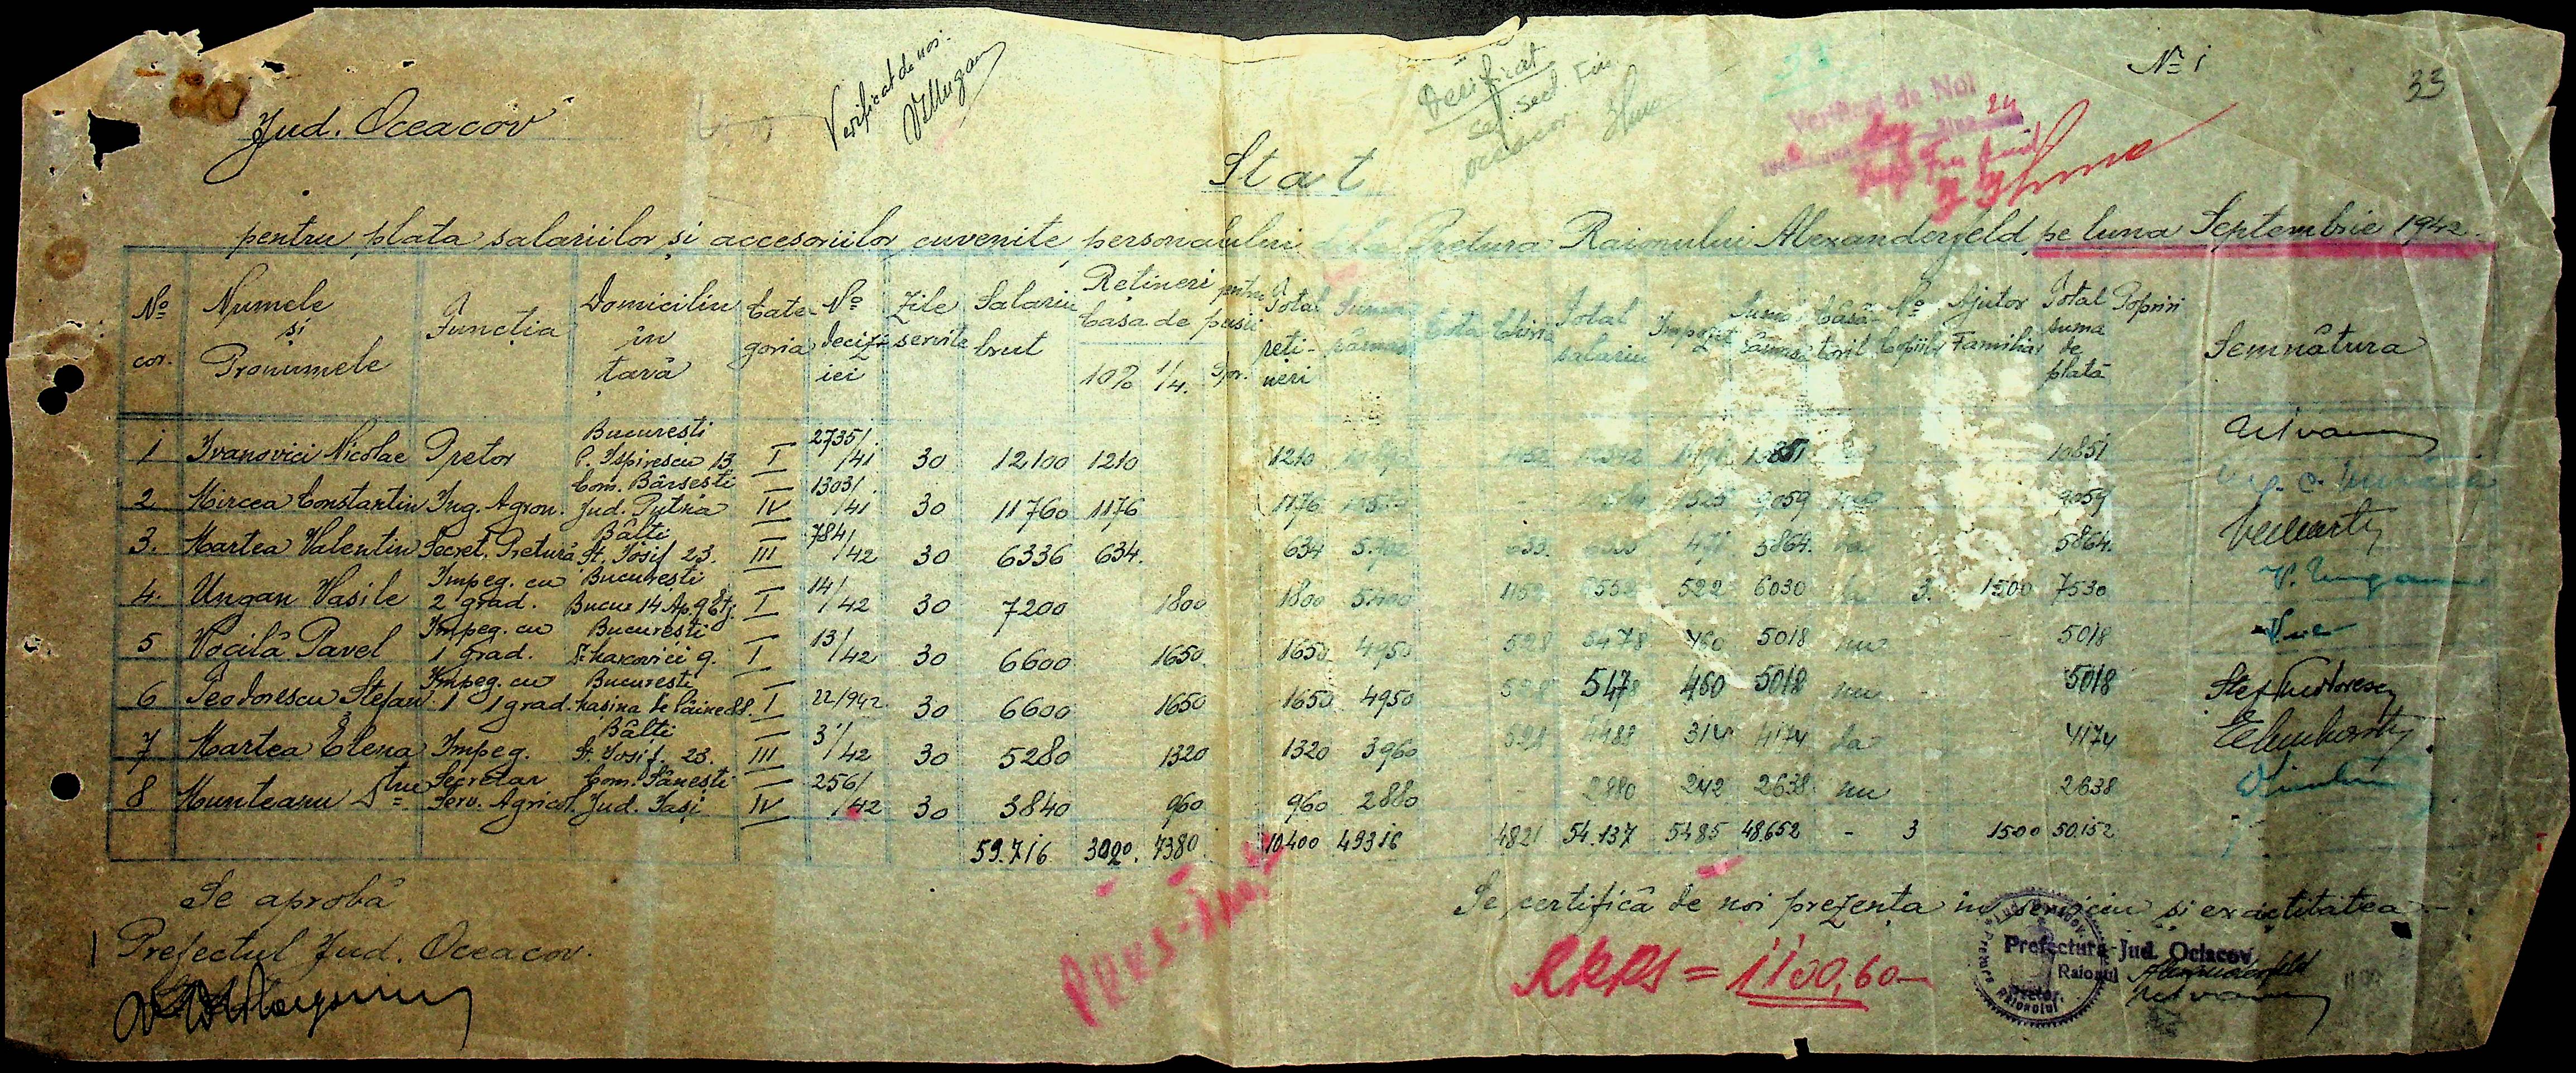 No 1
33
Verificat de noi.
Jud. Oceacov
Verificat
Verificat de Noi
24
Stat
pentru plata salariilor și accesoriilor cuvenite personalului de la Pretura Raionului Alexanderfeld pe luna Septembrie 1942.
No cor. Numele și Pronumele Funcția Domiciliu în țară Categoria No deciziei Zile servite Salariu brut Rețineri pentru Casa de pensii 10% 1/4. Spor. Total rețineri Suma rămasă Cota Chiria Total salariu Impozit Suma rămasă Căsătorit No Copiilor Ajutor Familiar Total suma de plată Popriri Semnătura
1 Ivanovici Nicolae Pretor București P. Ispirescu 13 I 2735/41 30 12100 1210 1210 10851 10851
2 Mircea Constantin Ing. Agron. Com. Bârsești Jud. Putna IV 1303/41 30 11760 1176 1176 1525 9059 9059
3. Martea Valentin Secret. Pretură Bălți St. Iosif 23. III 784/42 30 6336 634. 634 5.702 633. 6335 471 5864. da 5864.
4. Ungan Vasile Impeg. cu 2 grad. București Bucur 14 Ap. 9 Etj. I 14/42 30 7200 1800 1800 5400 1152 6552 522 6030 da 3. 1500 7530 V. Ungan
5 Vocilă Pavel Impeg. cu 1 grad. București 9. I 13/42 30 6600 1650. 1650 4950 528 5478 460 5018 nu - 5018
6 Teodorescu Ștefan Impeg. cu 1 grad. București Masina de Pâine 88. I 22/942 30 6600 1650 1650 4950 528 5478 460 5018 nu - 5018
7 Martea Elena Impeg. Bălți St. Iosif. 23. III 31/42 30 5280 1320 1320 3960 528 4488 314 4174 da 4174
8 Munteanu Dtru Secretar Serv. Agricol Com. Sănești Jud. Iași IV 256/42 30 3840 960 960 2880 - 2880 242 2638 nu - 2638
59.716 3020. 7380 10400 49316 4821 54.137 5485 48.652 - 3 1500 50.152
Se aprobă
Prefectul Jud. Oceacov.
Se certifică de noi prezența în serviciu și exactitatea.-
RRPS = 1100,60-
Prefectura Jud. Ociacov
Raionul Alexanderfeld
Pretor.